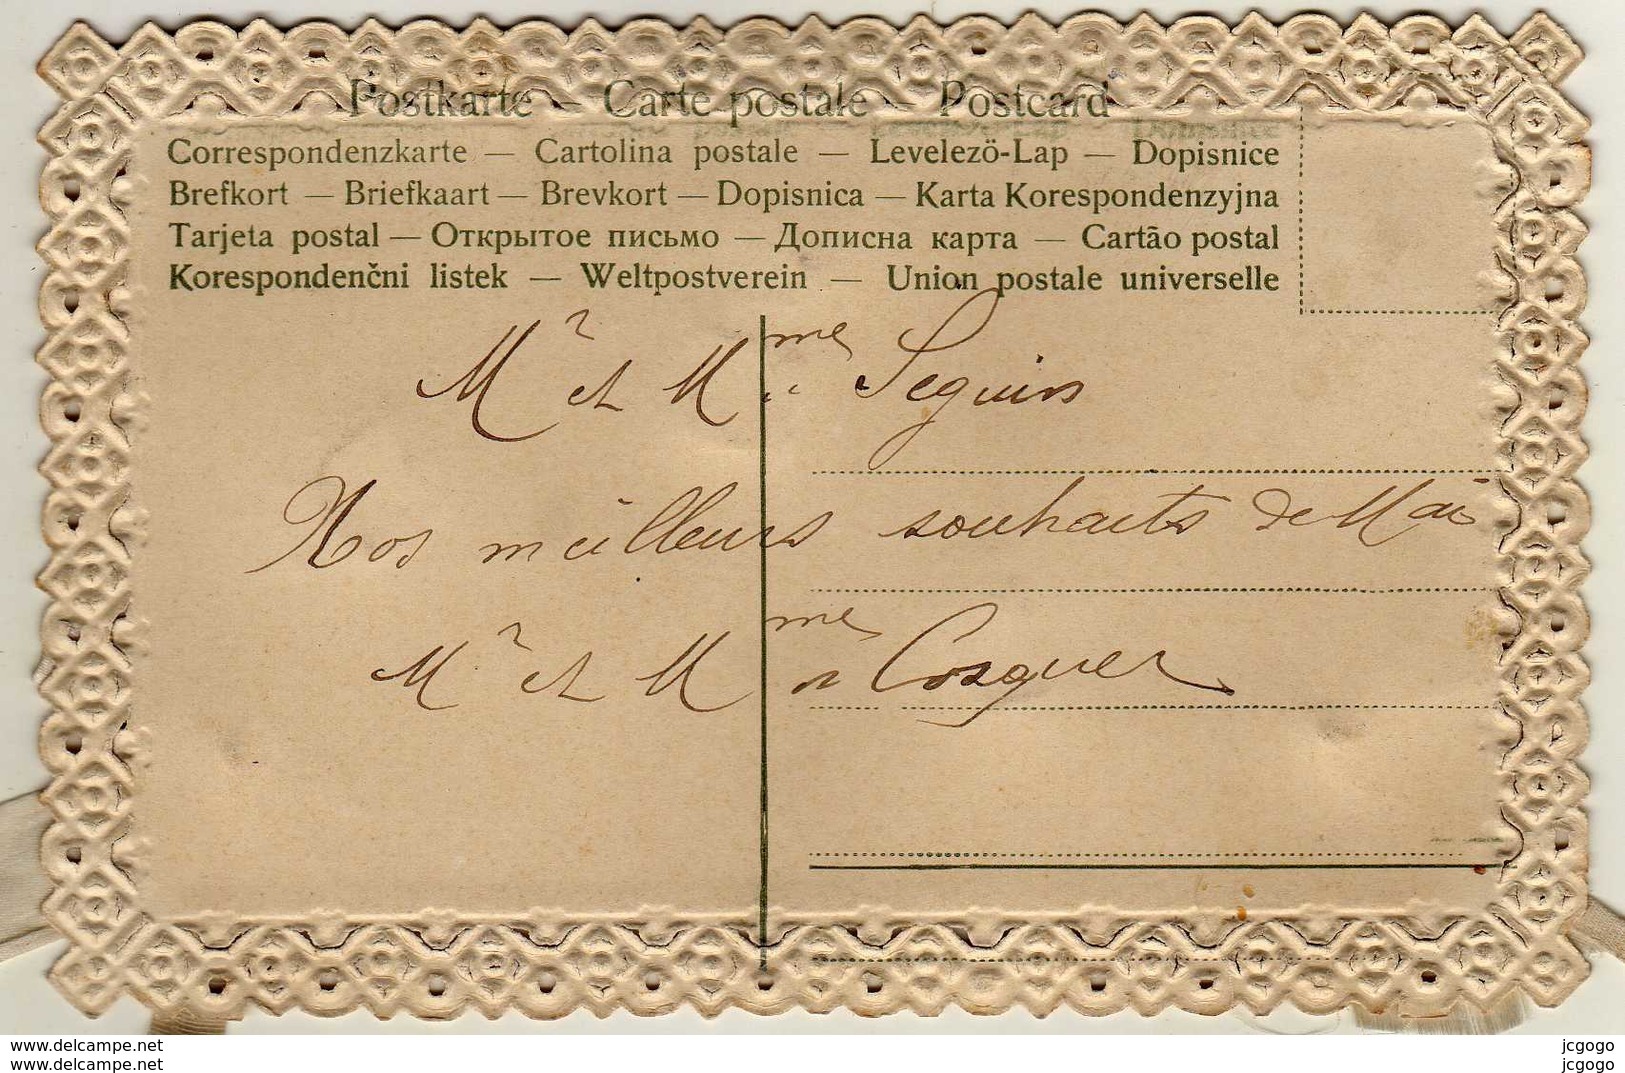 Postkarte — Carte postale — Postcard
Correspondenzkarte — Cartolina postale — Levelezö-Lap — Dopisnice
Brefkort — Briefkaart — Brevkort — Dopisnica — Karta Korespondenzyjna
Tarjeta postal — Открытое письмо — Дописна карта — Cartão postal
Korespondenčni listek — Weltpostverein — Union postale universelle
Mr et Mme Seguin
Nos meilleurs souhaits de Mai
Mr et Mme Cosquer
www.delcampe.net jcgogo
www.delcampe.net jcgogo